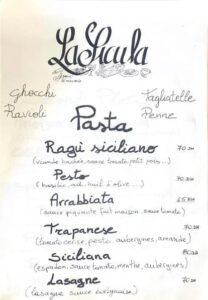 La Sicula
Gnocchi
Tagliatelle
Ravioli
Penne
Pasta
Ragù siciliano 70 DH
(viande hachée, sauce tomate, petit pois...)
Pesto 70 DH
(basilic, ail, huil d'olive ...)
Arrabbiata 65 DH
(sauce piquante fait maison, sauce tomate)
Trapanese 70 DH
(tomato cerise, pesto, aubergines, amande)
Siciliana 80 DH
(espadon, sauce tomate, menthe, aubergines)
Lasagne 70 DH
(lasagne sauce bolognaise)